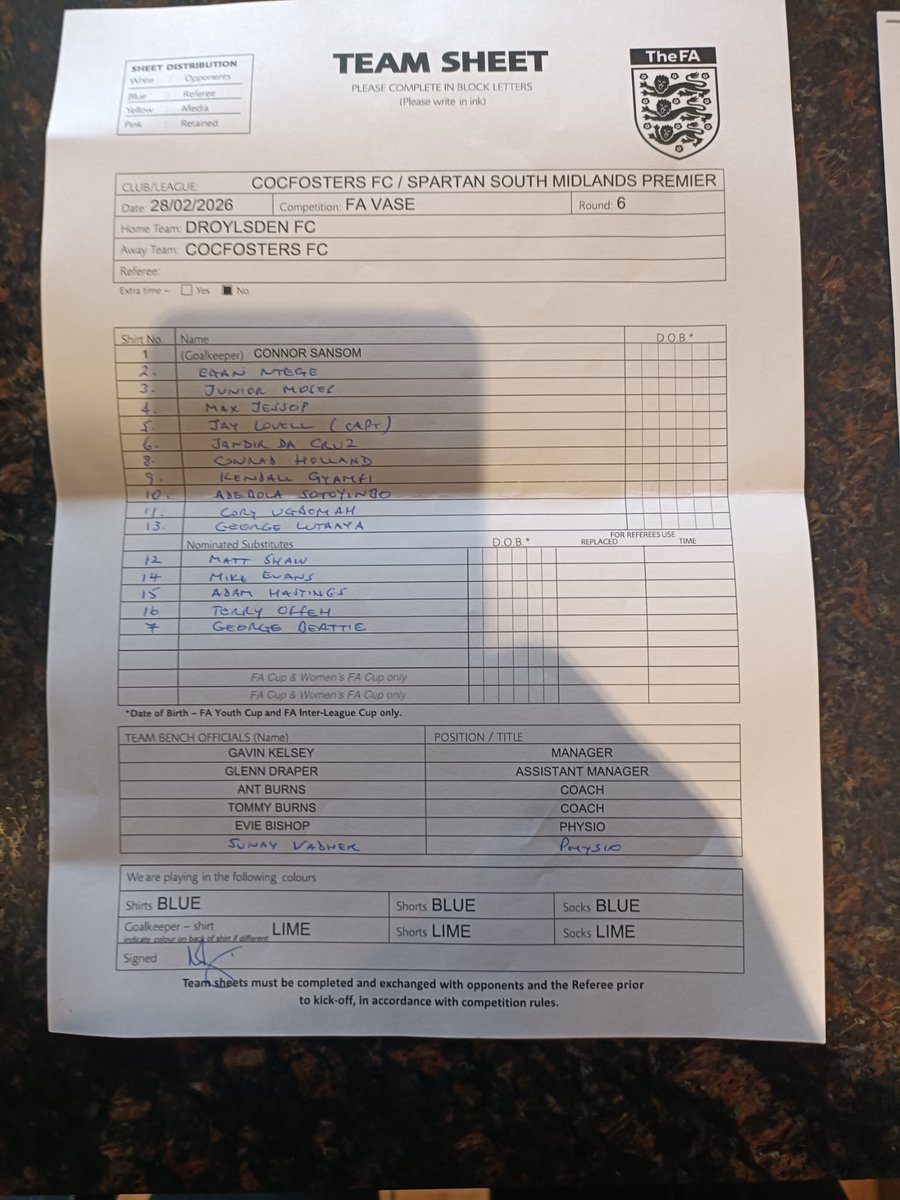 SHEET DISTRIBUTION
White : Opponents
Blue : Referee
Yellow : Media
Pink : Retained
TEAM SHEET
PLEASE COMPLETE IN BLOCK LETTERS
(Please write in ink)
The FA
CLUB/LEAGUE: COCFOSTERS FC / SPARTAN SOUTH MIDLANDS PREMIER
Date: 28/02/2026 Competition: FA VASE Round: 6
Home Team: DROYLSDEN FC
Away Team: COCFOSTERS FC
Referee:
Extra time – Yes No
Shirt No. Name D.O.B.*
1 (Goalkeeper) CONNOR SANSOM
2. NTEGE
3. JUNIOR
4. MAX JESSOP
5. JAY LOVELL (CAPT)
6. JANDIR DA CRUZ
8. CONRAD HOLLAND
9. KENDALL GYAMFI
10. ADEBOLA SOTOYINBO
11. CORY UGBOMAH
13. GEORGE LUTAAYA
Nominated Substitutes D.O.B.* FOR REFEREES USE
REPLACED TIME
12 MATT SHAW
14 MIKE EVANS
15 ADAM HASTINGS
16 TERRY OFFEH
7 GEORGE BEATTIE
FA Cup & Women's FA Cup only
FA Cup & Women's FA Cup only
*Date of Birth – FA Youth Cup and FA Inter-League Cup only.
TEAM BENCH OFFICIALS (Name) POSITION / TITLE
GAVIN KELSEY MANAGER
GLENN DRAPER ASSISTANT MANAGER
ANT BURNS COACH
TOMMY BURNS COACH
EVIE BISHOP PHYSIO
SUNAY VADHER PHYSIO
We are playing in the following colours
Shirts BLUE Shorts BLUE Socks BLUE
Goalkeeper – shirt LIME Shorts LIME Socks LIME
indicate colour on back of shirt if different
Signed
Team sheets must be completed and exchanged with opponents and the Referee prior
to kick-off, in accordance with competition rules.